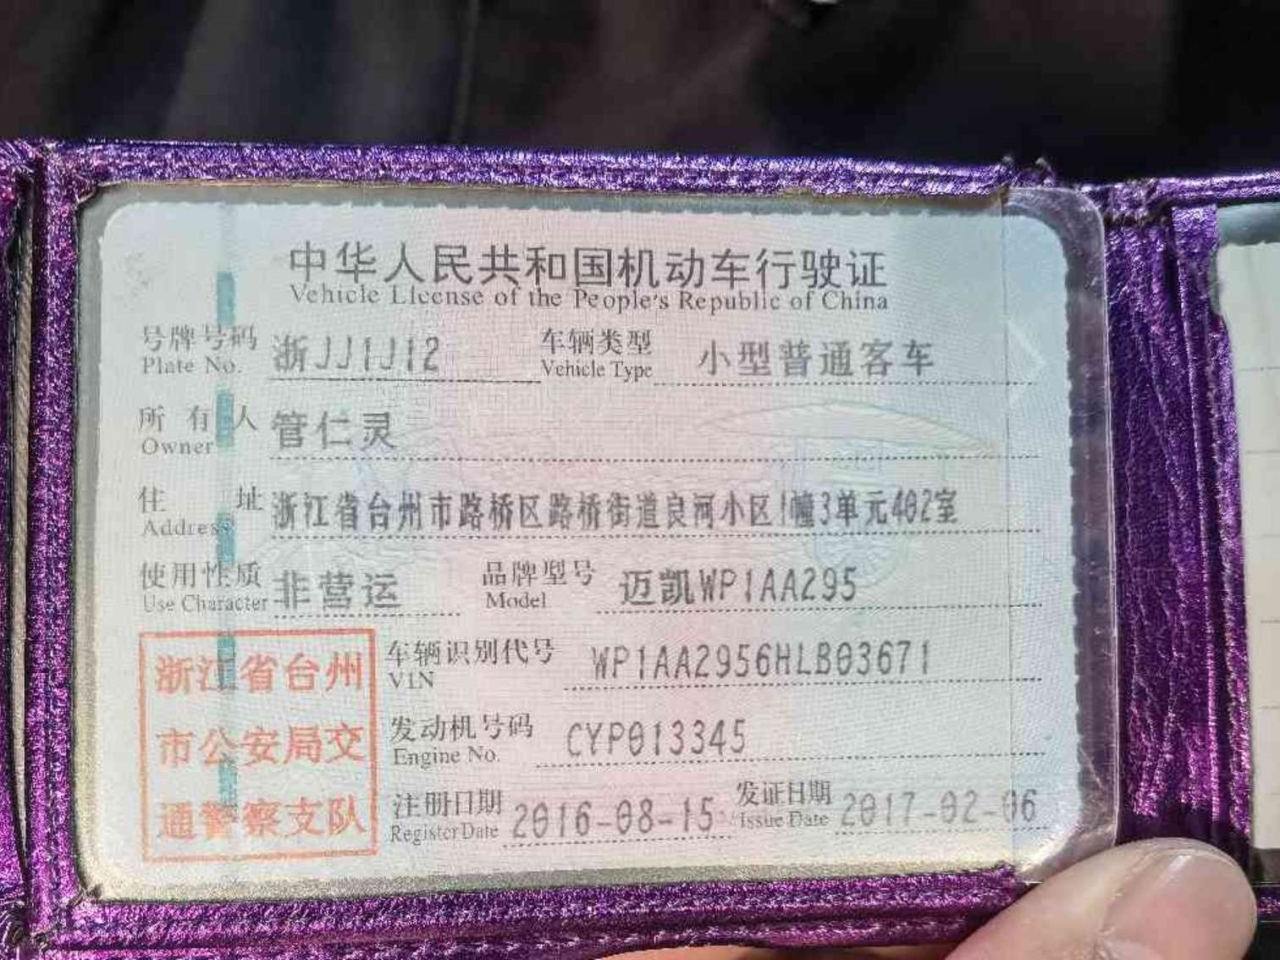 中华人民共和国机动车行驶证
Vehicle License of the People's Republic of China
号牌号码 浙JJ1J12 车辆类型 小型普通客车
Plate No. Vehicle Type
所有人 管仁灵
Owner
住址 浙江省台州市路桥区路桥街道良河小区1幢3单元402室
Address
使用性质 非营运 品牌型号 迈凯WP1AA295
Use Character Model
浙江省台州
市公安局交
通警察支队
车辆识别代号 WP1AA2956HLB03671
VIN
发动机号码 CYP013345
Engine No.
注册日期 2016-08-15 发证日期 2017-02-06
Register Date Issue Date